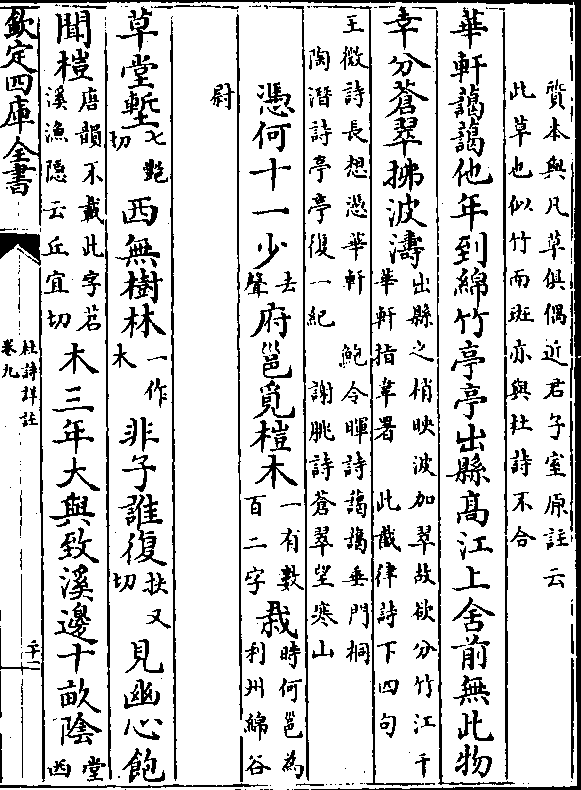 質本與凡草俱偶近君子室原註云
此草也似竹而斑亦與杜詩不合
華軒藹藹他年到綿竹亭亭出縣高江上舍前無此物
幸分蒼翠拂波濤
出縣之梢映波加翠故欲分竹江干
華軒指韋署 此截律詩下四句
王微詩長想憑華軒 鮑令暉詩藹藹垂門桐
陶潛詩亭亭復一紀 謝朓詩蒼翠望寒山
憑何十一少
去
聲
府邕覓榿木
一有數
百二字
栽
時何邕為
利州綿谷
尉
草堂塹
七艷
切
西無樹林
一作
木
非子誰復
扶又
切
見幽心飽
聞榿
唐韻不載此字苕
溪漁隱云丘宜切
木三年大與致溪邊十畝陰
堂
西
欽定四庫全書
杜詩詳註
卷九